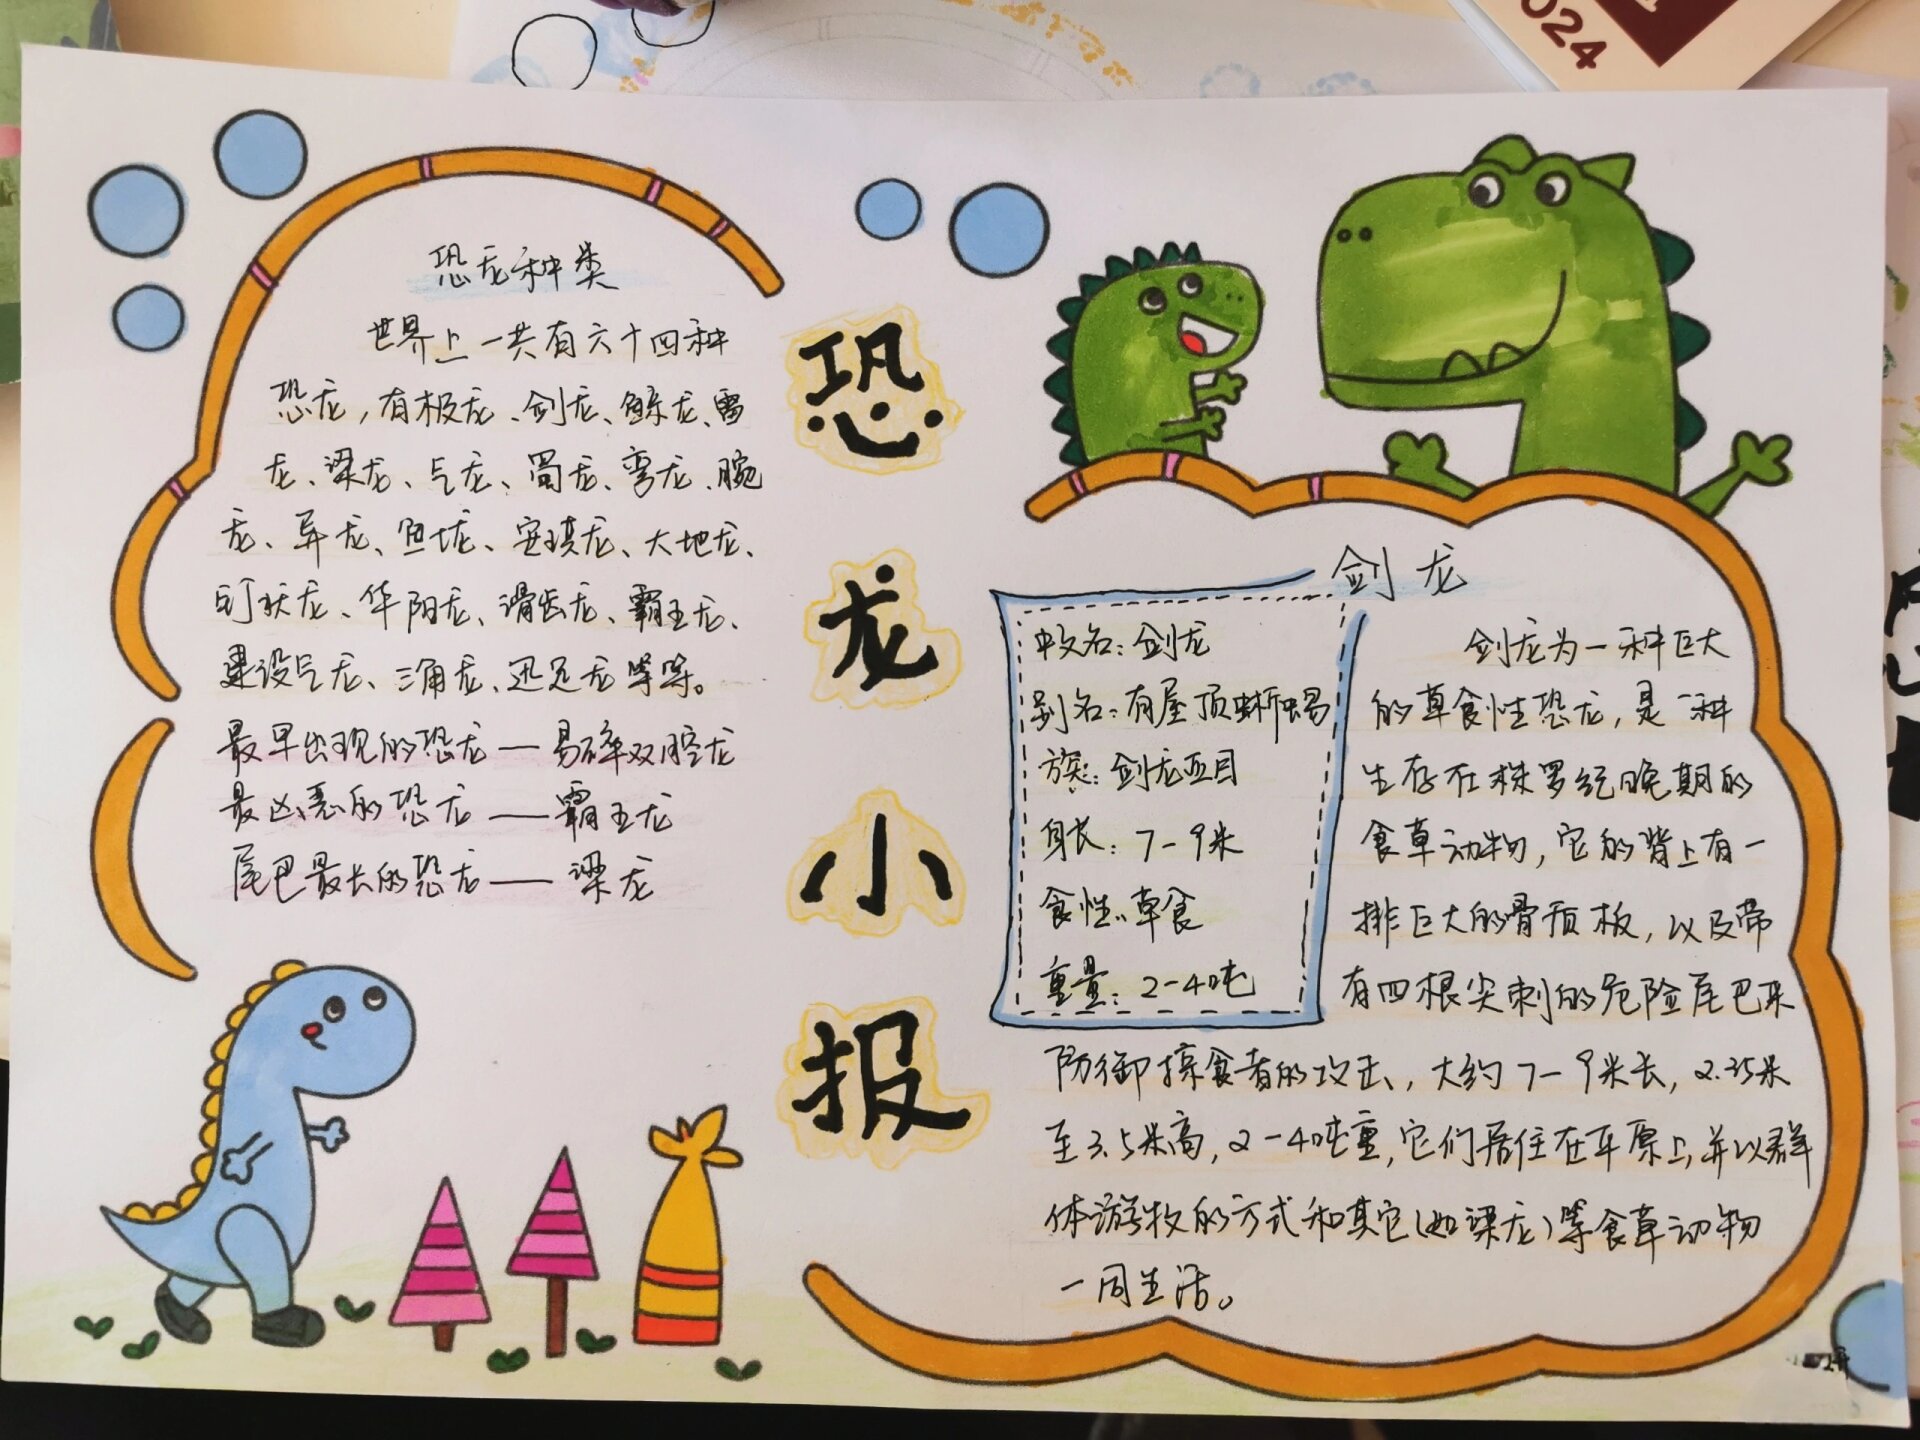 恐龙种类
世界上一共有六十四种
恐龙，有极龙、剑龙、龙、雷
龙、梁龙、气龙、蜀龙、弯龙、腕
龙、异龙、鱼龙、安琪龙、大地龙、
钉状龙、华阳龙、滑齿龙、霸王龙、
建设气龙、三角龙、迅足龙等等。
最早出现的恐龙——易碎双腔龙
最凶恶的恐龙——霸王龙
尾巴最长的恐龙——梁龙
恐龙小报
剑龙
中文名：剑龙
别名：有屋顶蜥蜴
族：剑龙亚目
身长：7-9米
食性：草食
重量：2-4吨
剑龙为一种巨大
的草食性恐龙，是一种
生存在株罗纪晚期的
食草动物，它的背上有一
排巨大的骨质板，以及带
有四根尖刺的危险尾巴来
防御掠食者的攻击，大约7-9米长，2.35米
至3.5米高，2-4吨重，它们居住在平原上，并以群
体游牧的方式和其它（如梁龙）等食草动物
一同生活。
2024